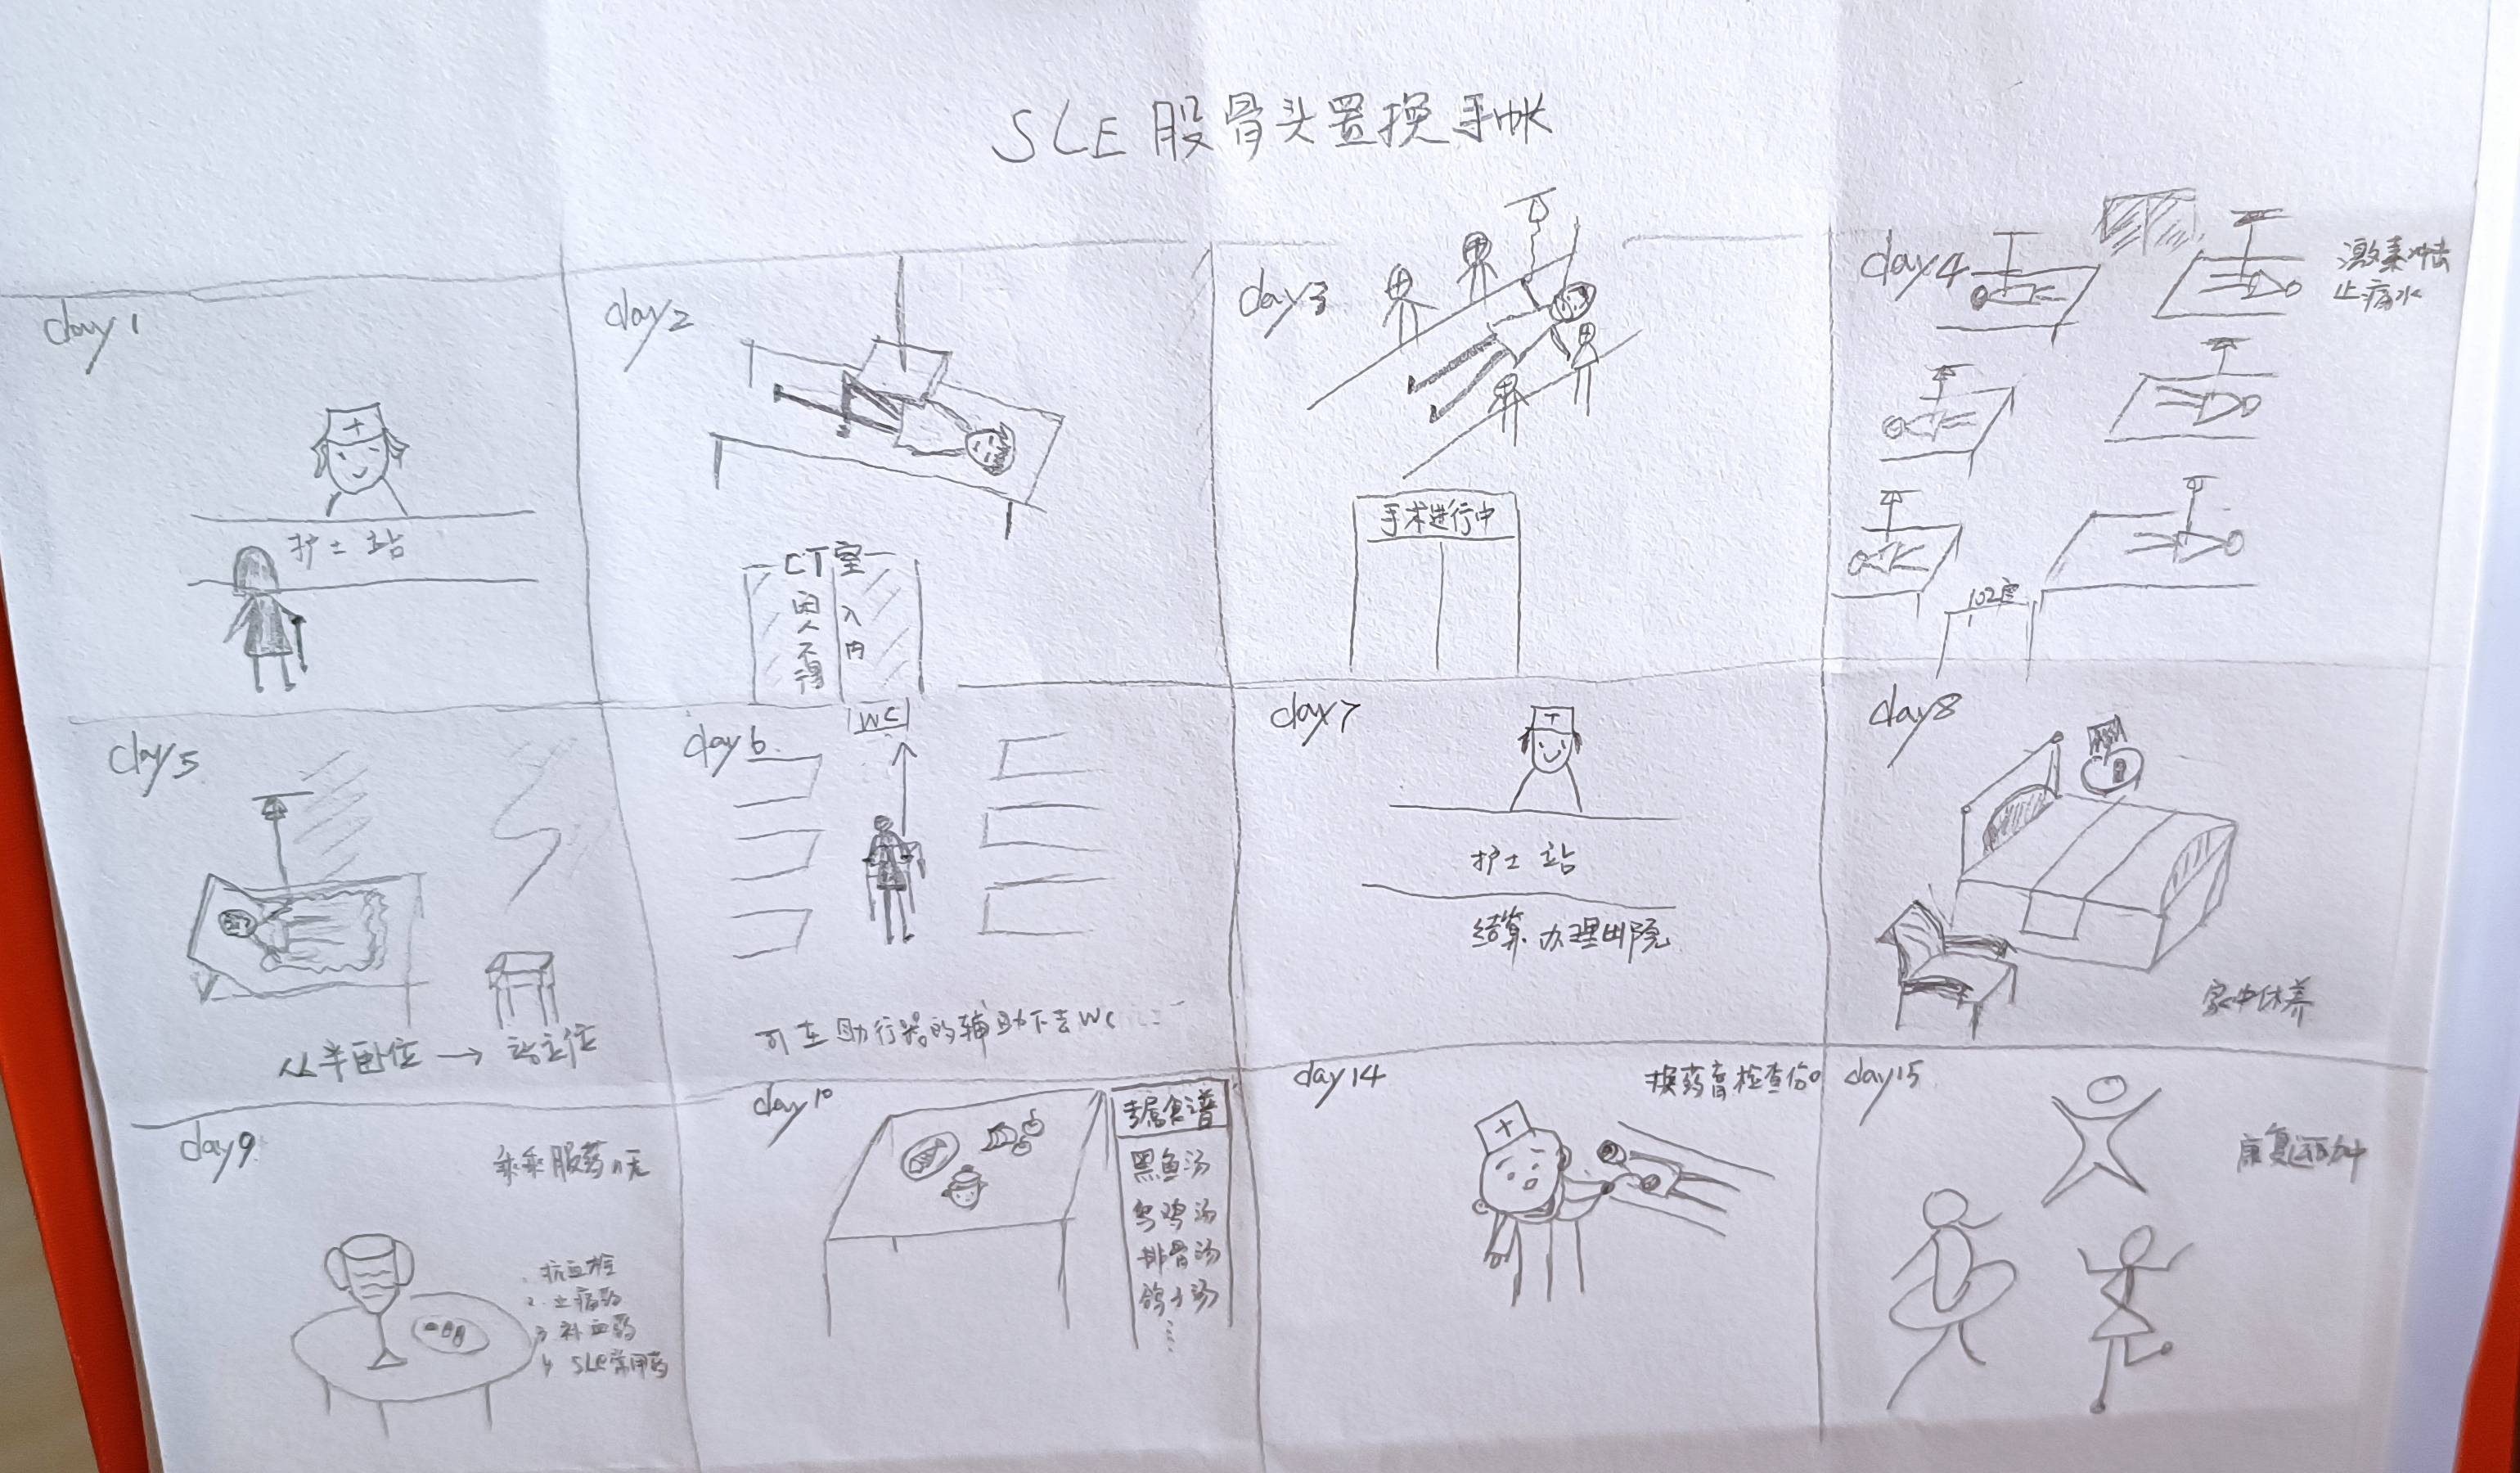 SLE 股骨头置换手帐
day1
护士站
day2
CT室
闲人不得
入内
day3
手术进行中
day4
激素冲击
止痛水
102室
day5
从半卧位 → 站立位
day6
WC
可在助行器的辅助下去WC
day7
护士站
结算 办理出院
day8
家中休养
day9
乖乖服药
1. 抗血栓
2. 止痛药
3 补血药
4 SLE常用药
day10
专属食谱
黑鱼汤
乌鸡汤
排骨汤
鸽子汤
……
day14
换药 检查伤口
day15
康复运动